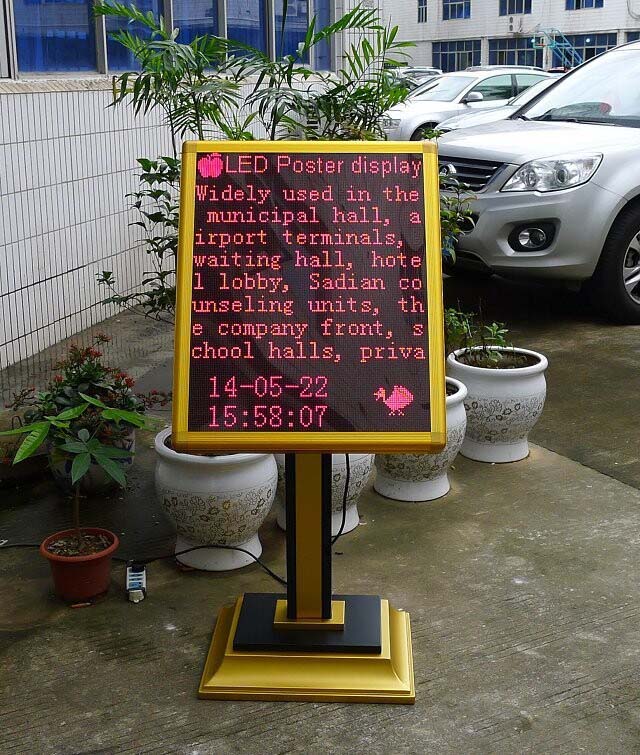 LED Poster display
Widely used in the
municipal hall, a
irport terminals,
waiting hall, hote
l lobby, Sadian co
unseling units, th
e company front, s
chool halls, priva
14-05-22
15:58:07